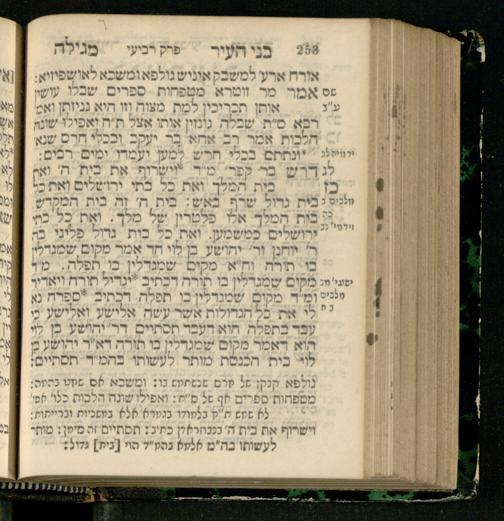 253 בני העיר פרק רביעי מגילה
אורח ארעי למשבק איניש גולפא ומשכא לאושפיזיה:
שם אמר מר זוטרא מטפחות ספרים שבלו עושין
ע"ב אותן תכריכין למת מצוה וזו היא גניזתן ואמר
רבא ס"ת שבלה גונזין אותו אצל ת"ח ואפילו שונה
הלכות אמר רב אחא בר יעקב ובכלי חרס שנא'
ירמיה לב ונתתם בכלי חרש למען יעמדו ימים רבים:
לג דרש בר קפר' מ"ד וישרוף את בית ה' ואת
בית המלך ואת כל בתי ירושלים ואת כל
מלכים ב בית גדול שרף באש: בית ה' זה בית המקדש.
כה בית המלך אלו פלטרין של מלך. ואת כל בתי
ירמי' נב ירושלים כמשמען. ואת כל בית גדול פליגי בה
ר' יוחנן ור' יהושע בן לוי חד אמר מקום שמגדלין
בו תורה וח"א מקום שמגדלין בו תפלה. מ"ד
ישעי' מב מקום שמגדלין בו תורה דכתיב יגדיל תורה ויאדיר
מלכים ומ"ד מקום שמגדלין בו תפלה דכתיב ספרה נא
ב ח לי את כל הגדולות אשר עשה אלישע ואלישע כי
עבד בתפלה הוא דעבד תסתיים דר' יהושע בן לוי
הוא דאמר מקום שמגדלין בו תורה דא"ר יהושע בן
לוי בית הכנסת מותר לעשותו בהמ"ד תסתיים:
גולפא קנקן של חרס שנשתמש בו: ומשכא אם שחט בהמה:
מטפחות ספרים אף של ס"ת: ואפילו שונה הלכות כלו' אפי'
לא שמש ת"ח בתלמוד בגמרא אלא במשניות וברייתות:
וישרוף את בית ה' בנבוזראדן כתיב: תסתיים זה סימן: מותר
לעשותו בה"מ אלמא בהמ"ד הוי [בית] גדול: